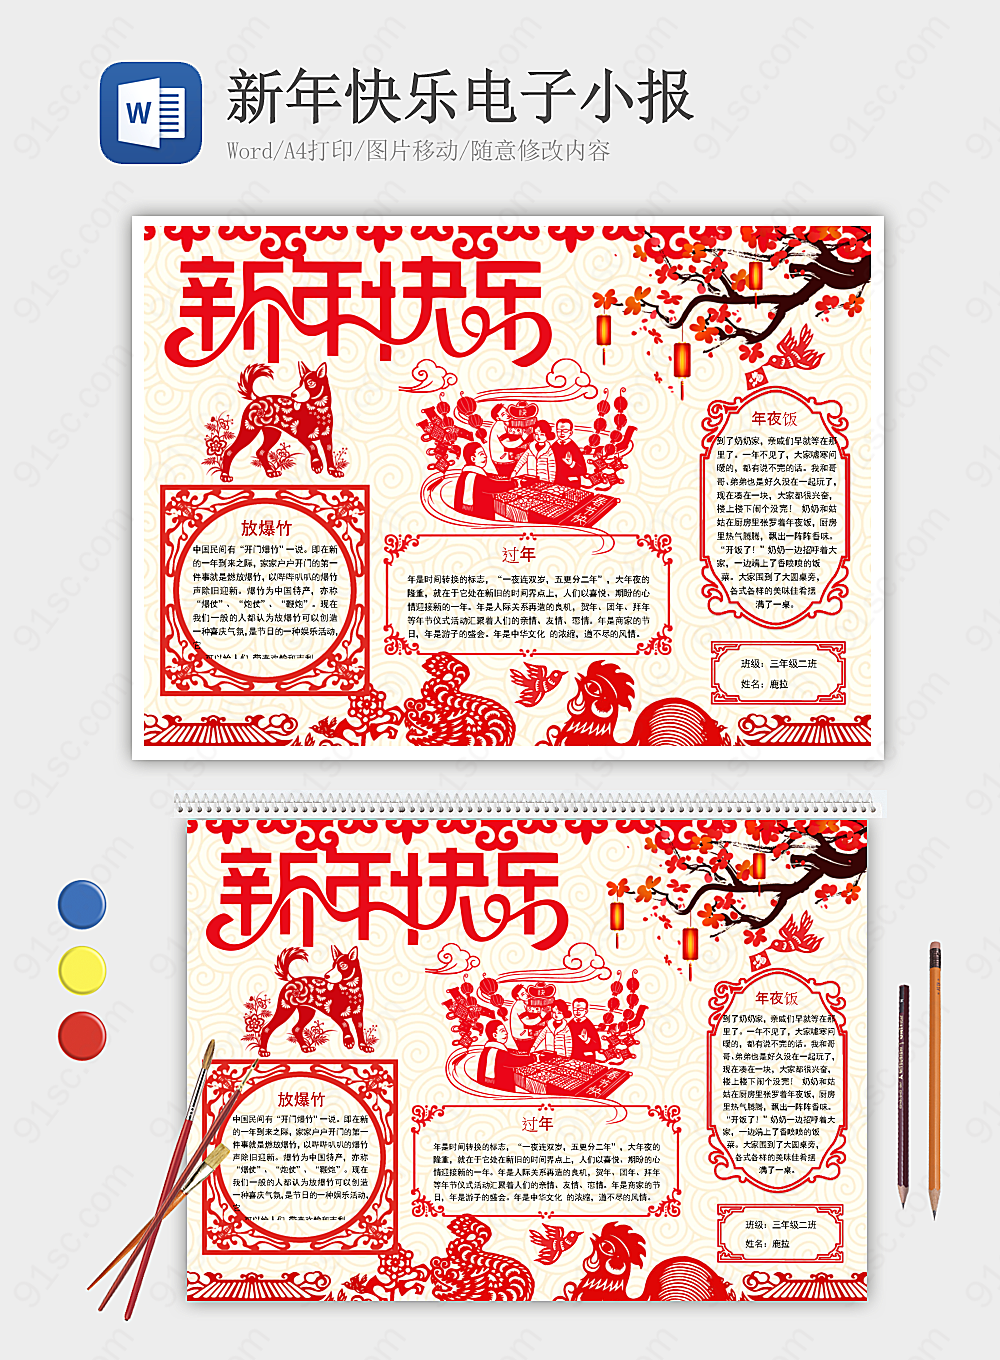 W
新年快乐电子小报
Word/A4打印/图片移动/随意修改内容
新年快乐
年夜饭
到了奶奶家，亲戚们早就等在那
里了。一年不见了，大家嘘寒问
暖的，都有说不完的话。我和哥
哥、弟弟也是好久没在一起玩了，
现在凑在一块，大家都很兴奋，
楼上楼下闹个没完！ 奶奶和姑
姑在厨房里张罗着年夜饭，厨房
里热气腾腾，飘出一阵阵香味。
“开饭了！”奶奶一边招呼着大
家，一边端上了香喷喷的饭
菜。大家围到了大圆桌旁，
各式各样的美味佳肴摆
满了一桌。
放爆竹
中国民间有“开门爆竹”一说。即在新
的一年到来之际，家家户户开门的第一
件事就是燃放爆竹，以哔哔叭叭的爆竹
声除旧迎新。爆竹为中国特产，亦称
“爆仗”、“炮仗”、“鞭炮”。现在
我们一般的人都认为放爆竹可以创造
一种喜庆气氛,是节日的一种娱乐活动，
可以给人们带来欢愉和吉利
过年
年是时间转换的标志，“一夜连双岁，五更分二年”，大年夜的
隆重，就在于它处在新旧的时间界点上，人们以喜悦、期盼的心
情迎接新的一年。年是人际关系再造的良机，贺年、团年、拜年
等年节仪式活动汇聚着人们的亲情、友情、恋情。年是商家的节
日，年是游子的盛会。年是中华文化 的浓缩，道不尽的风情。
班级：三年级二班
姓名：鹿拉
新年快乐
年夜饭
到了奶奶家，亲戚们早就等在那
里了。一年不见了，大家嘘寒问
暖的，都有说不完的话。我和哥
哥、弟弟也是好久没在一起玩了，
现在凑在一块，大家都很兴奋，
楼上楼下闹个没完！ 奶奶和姑
姑在厨房里张罗着年夜饭，厨房
里热气腾腾，飘出一阵阵香味。
“开饭了！”奶奶一边招呼着大
家，一边端上了香喷喷的饭
菜。大家围到了大圆桌旁，
各式各样的美味佳肴摆
满了一桌。
放爆竹
中国民间有“开门爆竹”一说。即在新
的一年到来之际，家家户户开门的第一
件事就是燃放爆竹，以哔哔叭叭的爆竹
声除旧迎新。爆竹为中国特产，亦称
“爆仗”、“炮仗”、“鞭炮”。现在
我们一般的人都认为放爆竹可以创造
一种喜庆气氛,是节日的一种娱乐活动，
可以给人们带来欢愉和吉利
过年
年是时间转换的标志，“一夜连双岁，五更分二年”，大年夜的
隆重，就在于它处在新旧的时间界点上，人们以喜悦、期盼的心
情迎接新的一年。年是人际关系再造的良机，贺年、团年、拜年
等年节仪式活动汇聚着人们的亲情、友情、恋情。年是商家的节
日，年是游子的盛会。年是中华文化 的浓缩，道不尽的风情。
班级：三年级二班
姓名：鹿拉
91sc.com